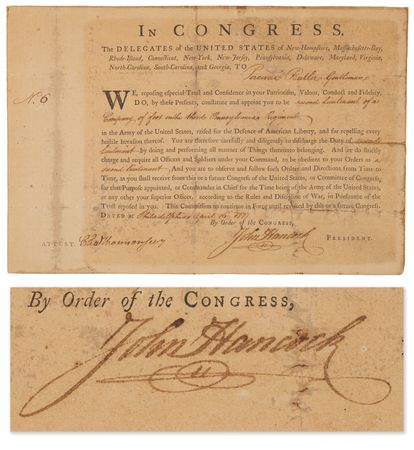 IN CONGRESS.
The DELEGATES of the UNITED STATES of New-Hampshire, Massachusetts-Bay,
Rhode-Island, Connecticut, New-York, New-Jersey, Pennsylvania, Delaware, Maryland, Virginia,
North-Carolina, South-Carolina, and Georgia, TO Percival Butler Gentleman
No. 6
WE, reposing especial Trust and Confidence in your Patriotism, Valour, Conduct and Fidelity,
DO, by these Presents, constitute and appoint you to be second Lieutenant of a
Company of foot in the third Pennsylvania Regiment
in the Army of the United States, raised for the Defence of American Liberty, and for repelling every
hostile Invasion thereof. You are therefore carefully and diligently to discharge the Duty of second
lieutenant by doing and performing all manner of Things thereunto belonging. And we do strictly
charge and require all Officers and Soldiers under your Command, to be obedient to your Orders as
second lieutenant. And you are to observe and follow such Orders and Directions from Time to
Time, as you shall receive from this or a future Congress of the United States, or Committee of Congress,
for that Purpose appointed, or Commander in Chief for the Time being of the Army of the United States,
or any other your superior Officer, according to the Rules and Discipline of War, in Pursuance of the
Trust reposed in you. This Commission to continue in Force until revoked by this or a future Congress.
DATED at Philadelphia April 15 1777
By Order of the CONGRESS,
ATTEST. Cha Thomson secy John Hancock PRESIDENT.
By Order of the CONGRESS,
John Hancock